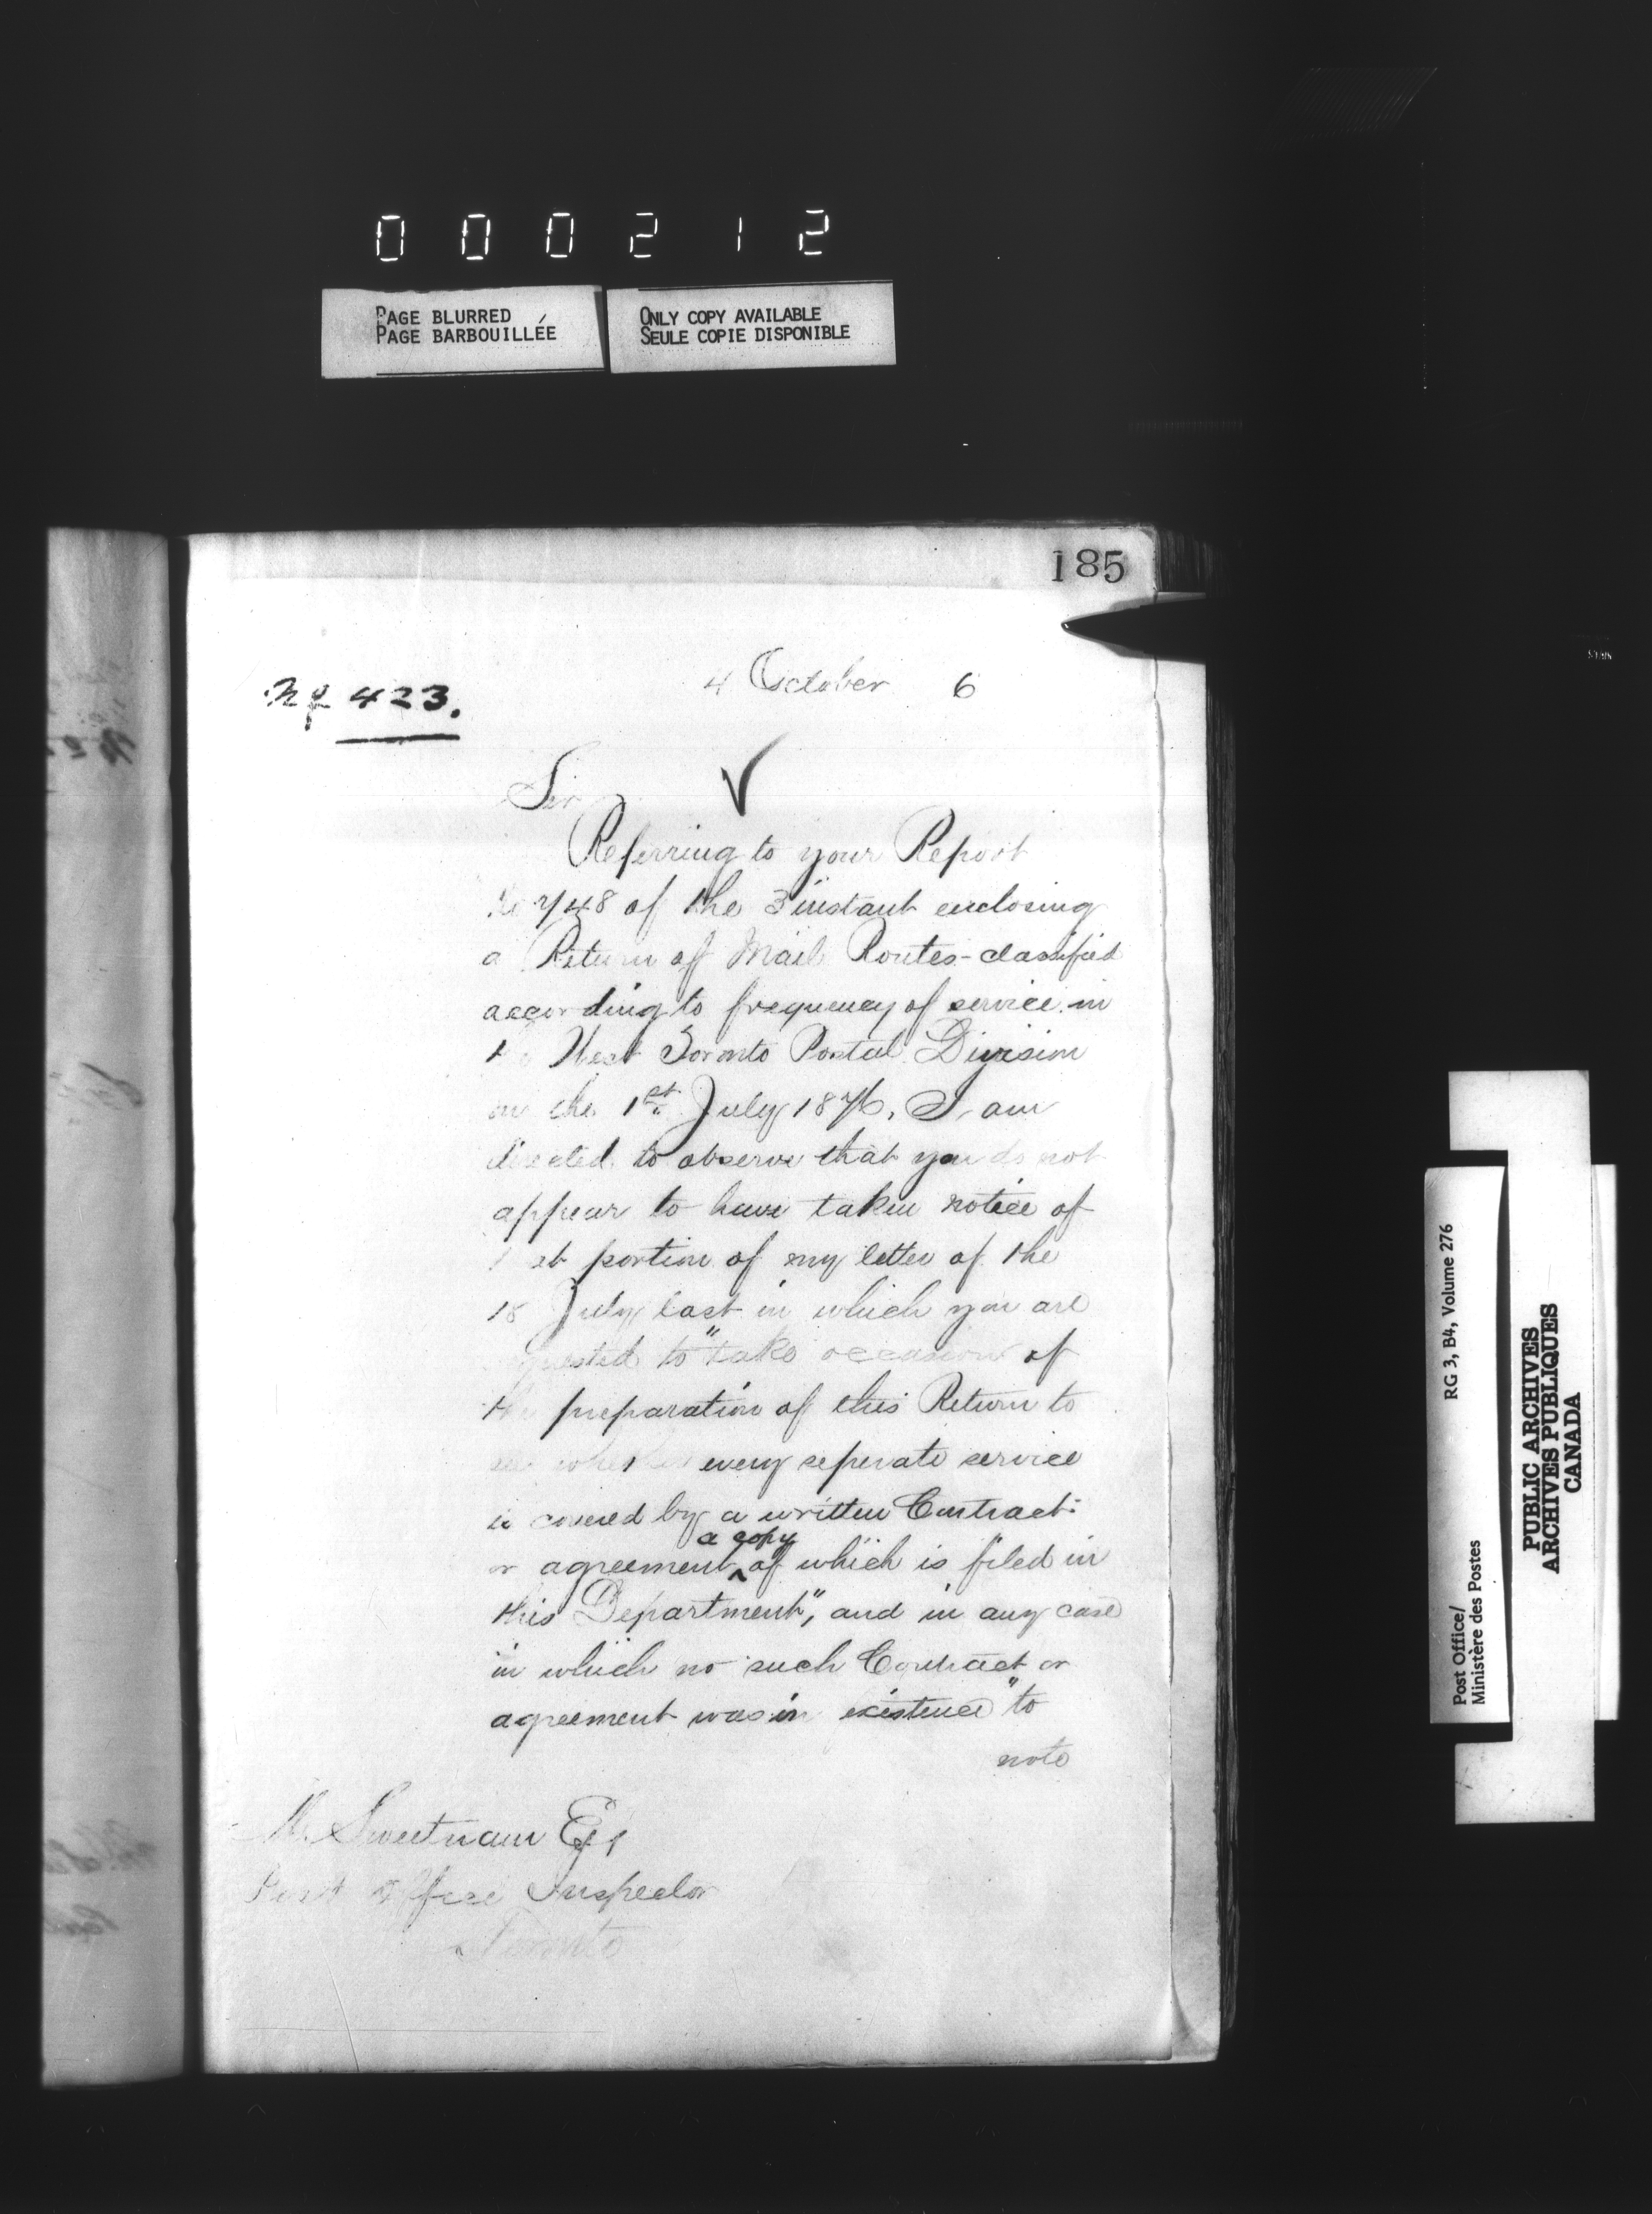 000212
PAGE BLURRED
PAGE BARBOUILLÉE
ONLY COPY AVAILABLE
SEULE COPIE DISPONIBLE
185
No 423.
4 October 6
Sir
Referring to your Report
748 of the 3 instant enclosing
a Return of Mail Routes classified
according to frequency of service in
the West Toronto Postal Division
on the 1st July 1876, I am
directed to observe that you do not
appear to have taken notice of
portion of my letter of the
18 July last in which you are
to "take occasion of
the preparation of this Return to
see whether every seperate service
is covered by a written Contract
or agreement a copy of which is filed in
this Department", and in any case
in which no such Contract or
agreement was in existence "to
note
M. Sweetnam Esq
Post Office Inspector
Toronto
RG 3, B4, Volume 276
Post Office/
Ministère des Postes
PUBLIC ARCHIVES
ARCHIVES PUBLIQUES
CANADA